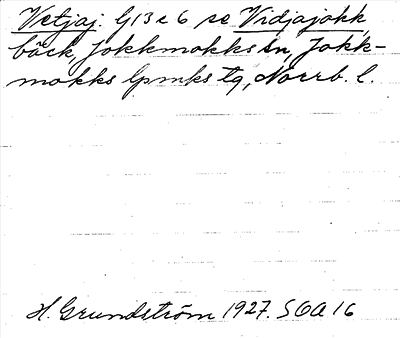 Vetjaj: G13e6 se Vidjajokk,
bäck, Jokkmokks sn, Jokk-
mokks lpmks tg, Norrb. l.
H. Grundström 1927. SOA 16